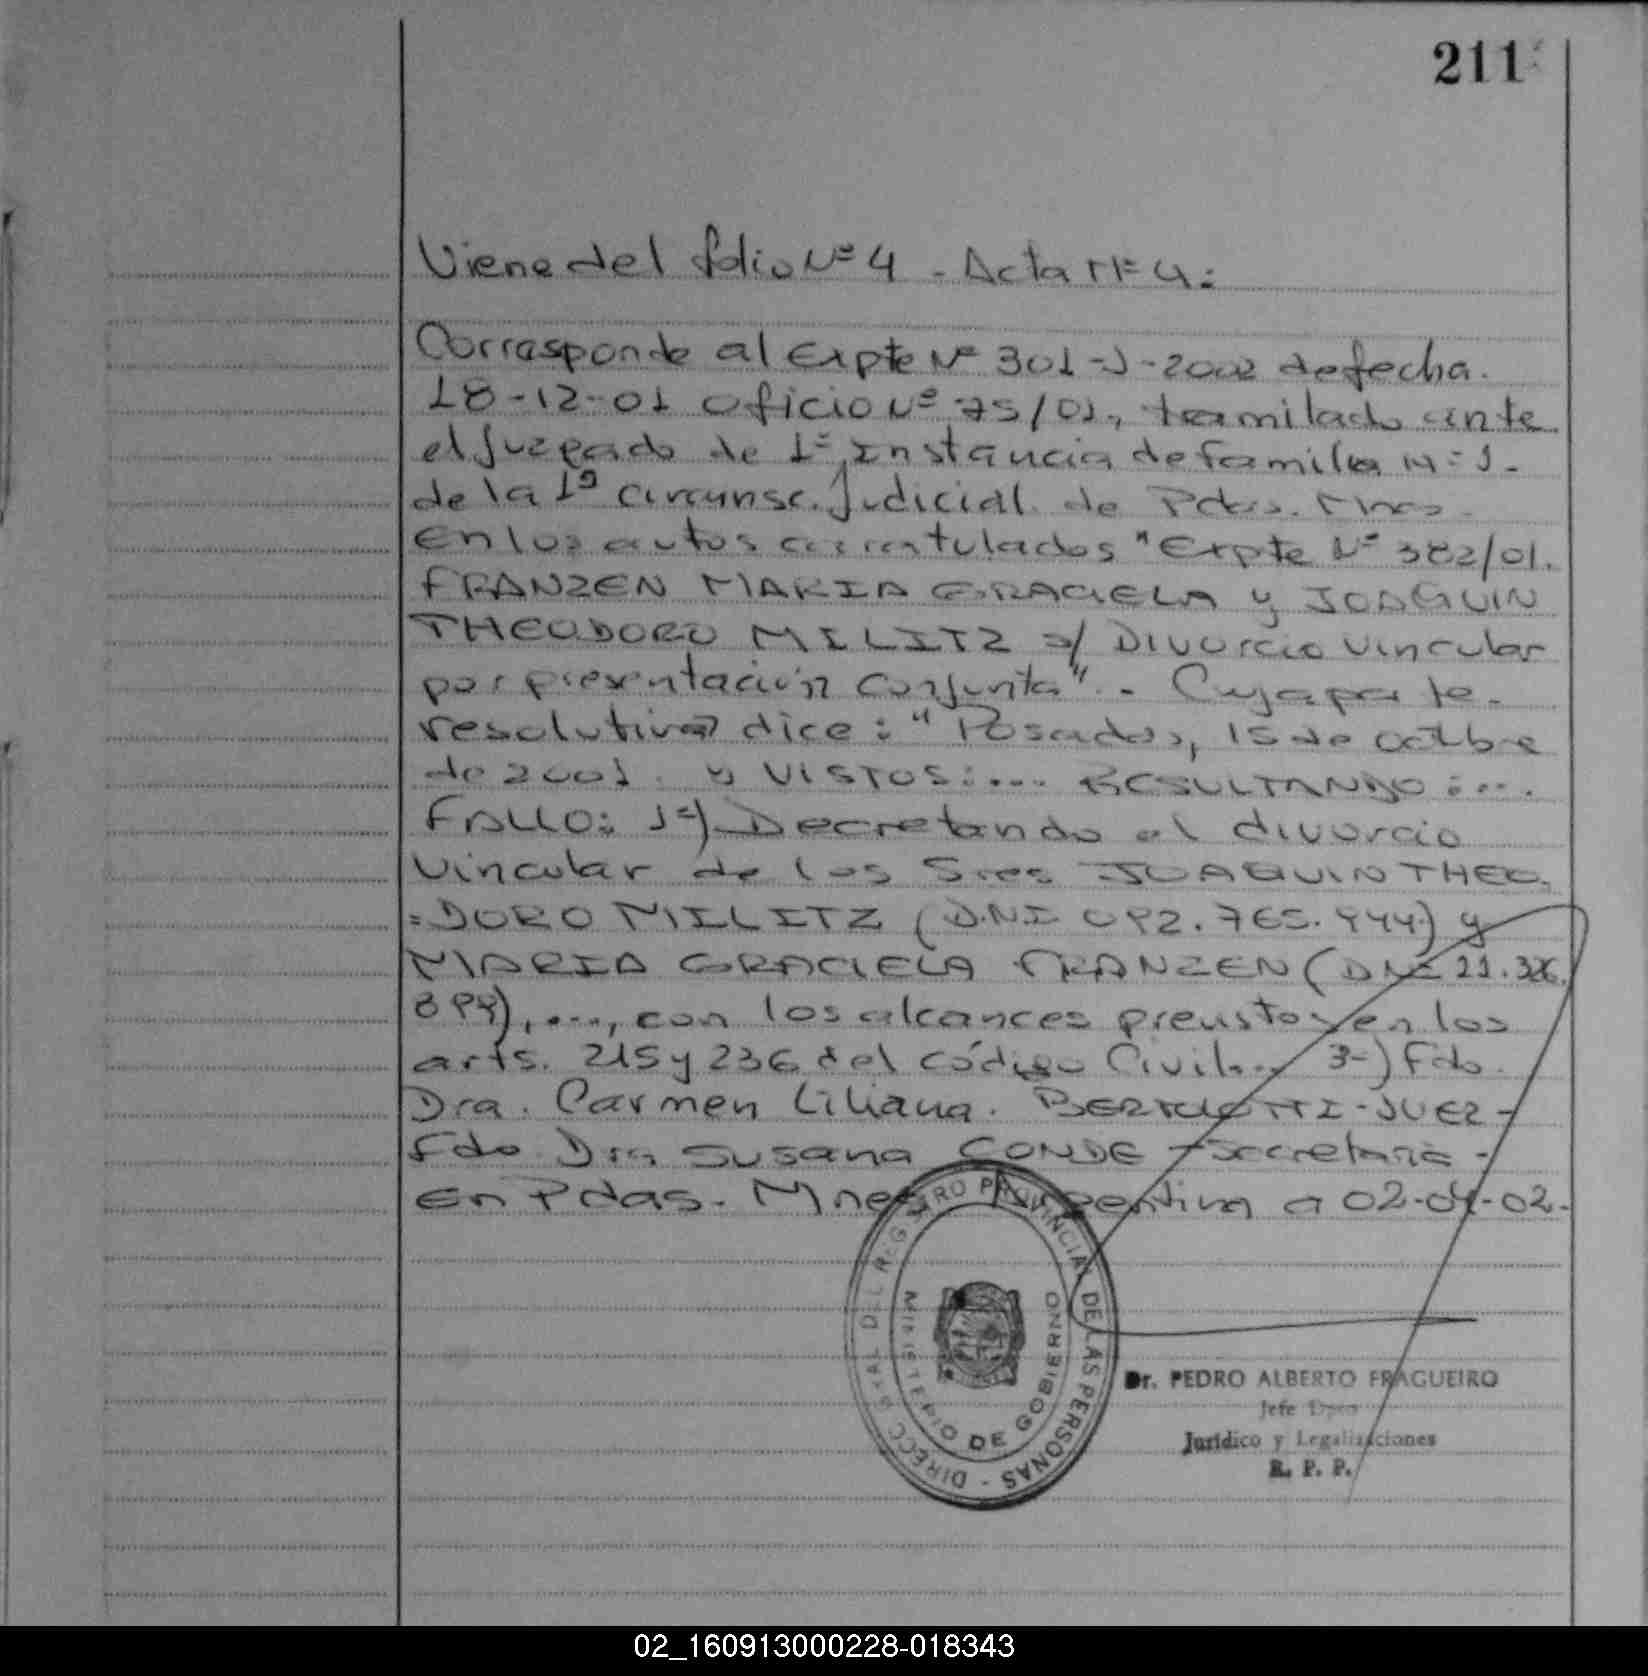 211
Viene del folio Nº 4 - Acta Nº 4:
Corresponde al Expte Nº 301-J-2002 de fecha.
18-12-01 oficio Nº 75/01, tramitado ante
el Juzgado de 1º Instancia de familia Nº 1.
de la 1ª circunsc. Judicial de Pdas. Mnes.
En los autos caratulados "Expte Nº 382/01.
FRANZEN MARIA GRACIELA y JOAQUIN
THEODORO MILITZ s/ Divorcio Vincular
por presentación conjunta". - Cuya parte.
resolutiva dice: "Posadas, 15 de octubre
de 2001. y VISTOS:... RESULTANDO:...
FALLO: 1º) Decretando el divorcio
Vincular de los Sres JOAQUIN THEO.
=DORO MILITZ (D.N.I 092.765.944) y
MARIA GRACIELA FRANZEN (DNI 21.326.
898),..., con los alcances previstos en los
arts. 215 y 236 del código Civil... 3-) Fdo.
Dra. Carmen Liliana. - JUEZ -
Fdo Dra Susana CONDE - Secretaria -
En Pdas. Mnes Argentina a 02-04-02.
DIRECC GRAL DEL REGISTRO PROVINCIAL DE LAS PERSONAS -
MINISTERIO DE GOBIERNO
Dr. PEDRO ALBERTO FRAGUEIRO
Jefe Dpto
Jurídico y Legalizaciones
R. P. P.
02_160913000228-018343